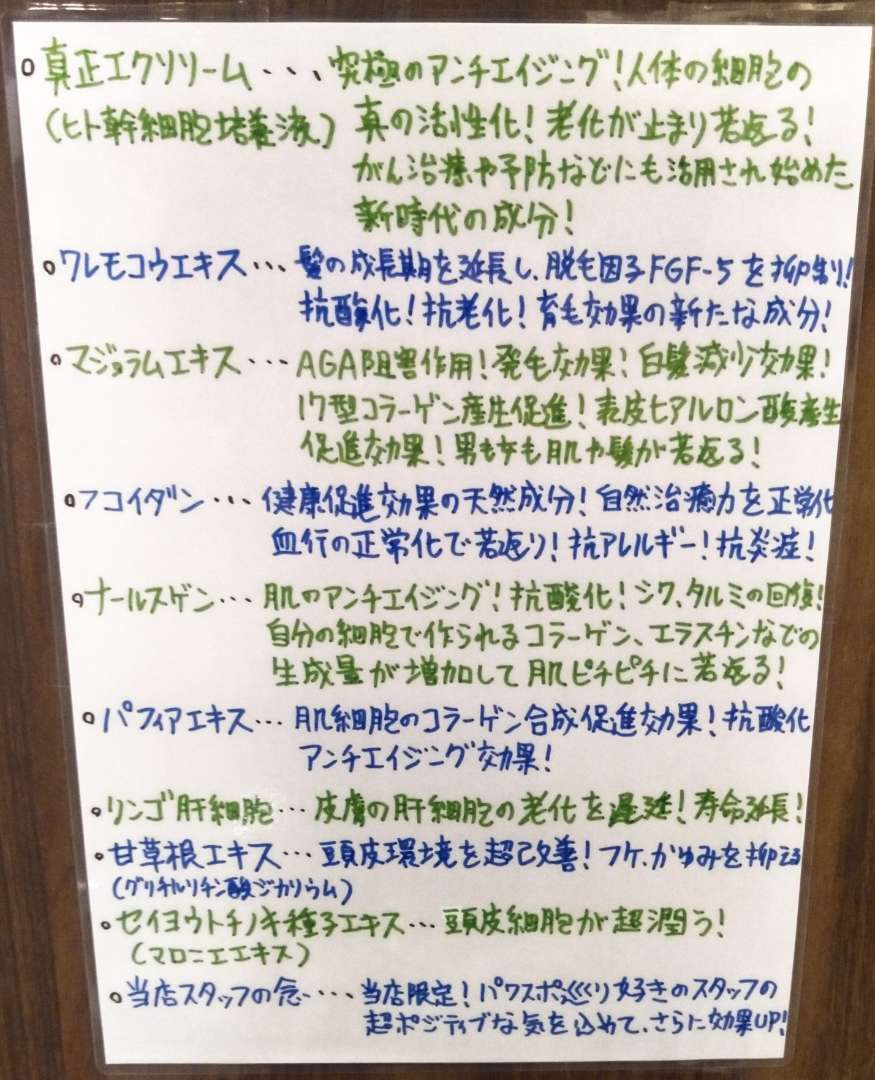 ○真正エクソリーム・・・、究極のアンチエイジング!人体の細胞の
(ヒト幹細胞培養液)真の活性化!老化が止まり若返る!
がん治療や予防などにも活用され始めた
新時代の成分!
○ワレモコウエキス・・・髪の成長期を延長し、脱毛因子FGF-5を抑制!
抗酸化!抗老化!育毛効果の新たな成分!
○マジョラムエキス・・・AGA阻害作用!発毛効果!白髪減少効果!
17型コラーゲン産生促進!表皮ヒアルロン酸産生
促進効果!男も女も肌や髪が若返る!
○フコイダン・・・健康促進効果の天然成分!自然治癒力を正常化
血行の正常化で若返り!抗アレルギー!抗炎症!
○ナールスゲン・・・肌のアンチエイジング!抗酸化!シワ、タルミの回復!
自分の細胞で作られるコラーゲン、エラスチンなどの
生成量が増加して肌ピチピチに若返る!
○パフィアエキス・・・肌細胞のコラーゲン合成促進効果!抗酸化
アンチエイジング効果!
○リンゴ肝細胞・・・皮膚の肝細胞の老化を遅延!寿命延長!
○甘草根エキス・・・頭皮環境を超改善!フケ、かゆみを抑える
(グリチルリチン酸ジカリウム)
○セイヨウトチノキ種子エキス・・・頭皮細胞が超潤う!
(マロニエエキス)
○当店スタッフの念・・・・当店限定!パワスポ巡り好きのスタッフの
超ポジティブな気を込めて、さらに効果UP!